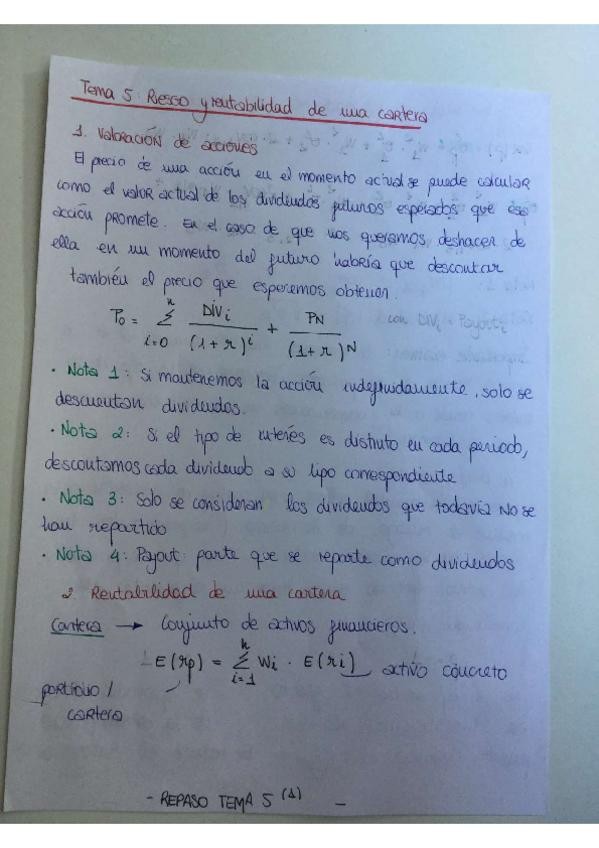 Tema 5: Riesgo y rentabilidad de una cartera
1. Valoración de acciones
El precio de una acción en el momento actual se puede calcular
como el valor actual de los dividendos futuros esperados que esa
acción promete. En el caso de que nos queramos deshacer de
ella en un momento del futuro habría que descontar
también el precio que esperemos obtener.
P₀ = Σ (i=0, n) DIVi / (1+r)^i + PN / (1+r)^N
· Nota 1: Si mantenemos la acción indefinidamente, solo se
descuentan dividendos.
· Nota 2: Si el tipo de interés es distinto en cada periodo,
descontamos cada dividendo a su tipo correspondiente
· Nota 3: Solo se consideran los dividendos que todavía NO se
han repartido
· Nota 4: Payout: parte que se reparte como dividendos
2. Rentabilidad de una cartera
Cartera → Conjunto de activos financieros.
E(rp) = Σ (i=1, n) Wi · E(ri) activo concreto
portfolio /
cartera
- REPASO TEMA 5 (1) -